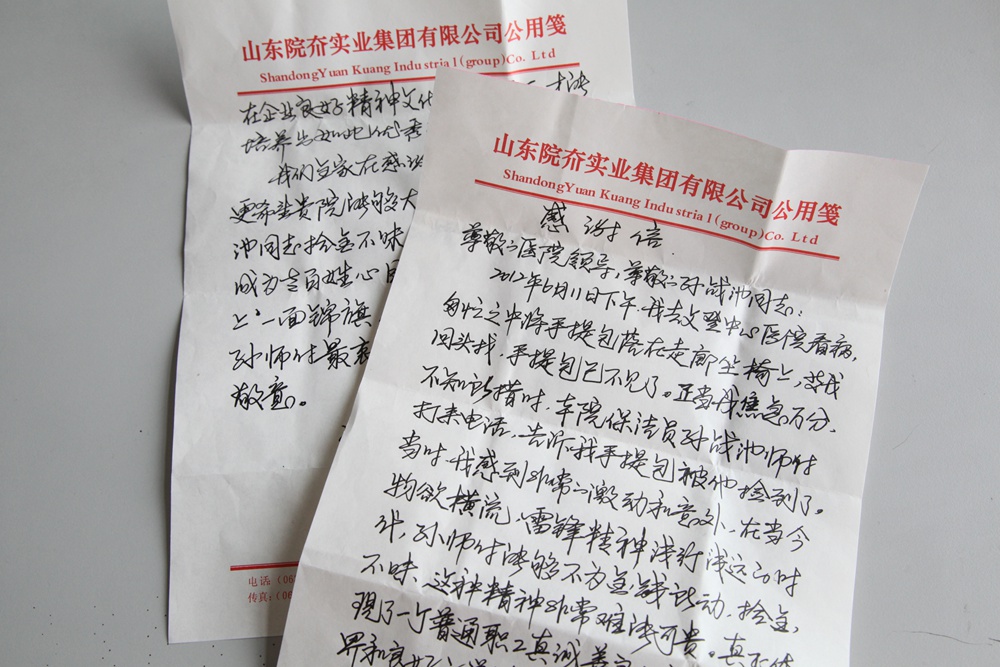 山东院夼实业集团有限公司公用笺
ShandongYuan Kuang Industrial(group)Co. Ltd
在企业良好精神文化
培养出如此优秀
我们全家在感谢
更希望贵院能够大
池同志拾金不昧
成为老百姓心目
上"一面锦旗
孙师付最衷
敬意。
电话:(06
传真:(06
山东院夼实业集团有限公司公用笺
ShandongYuan Kuang Industrial(group)Co. Ltd
感谢信
尊敬的医院领导,尊敬的孙战池同志:
2012年6月11日下午,我去文登中心医院看病,
匆忙之中将手提包落在走廊坐椅上,等我
回头找,手提包已不见了。正当我焦急万分,
不知所措时,车院保洁员孙战池师付
打来电话,告诉我手提包被他捡到了。
当时,我感到非常的激动和意外,在当今
物欲横流,雷锋精神渐行渐远的时
代,孙师付能够不为金钱所动,拾金
不昧,这种精神非常难能可贵。真正体
现了一个普通职工真诚善良